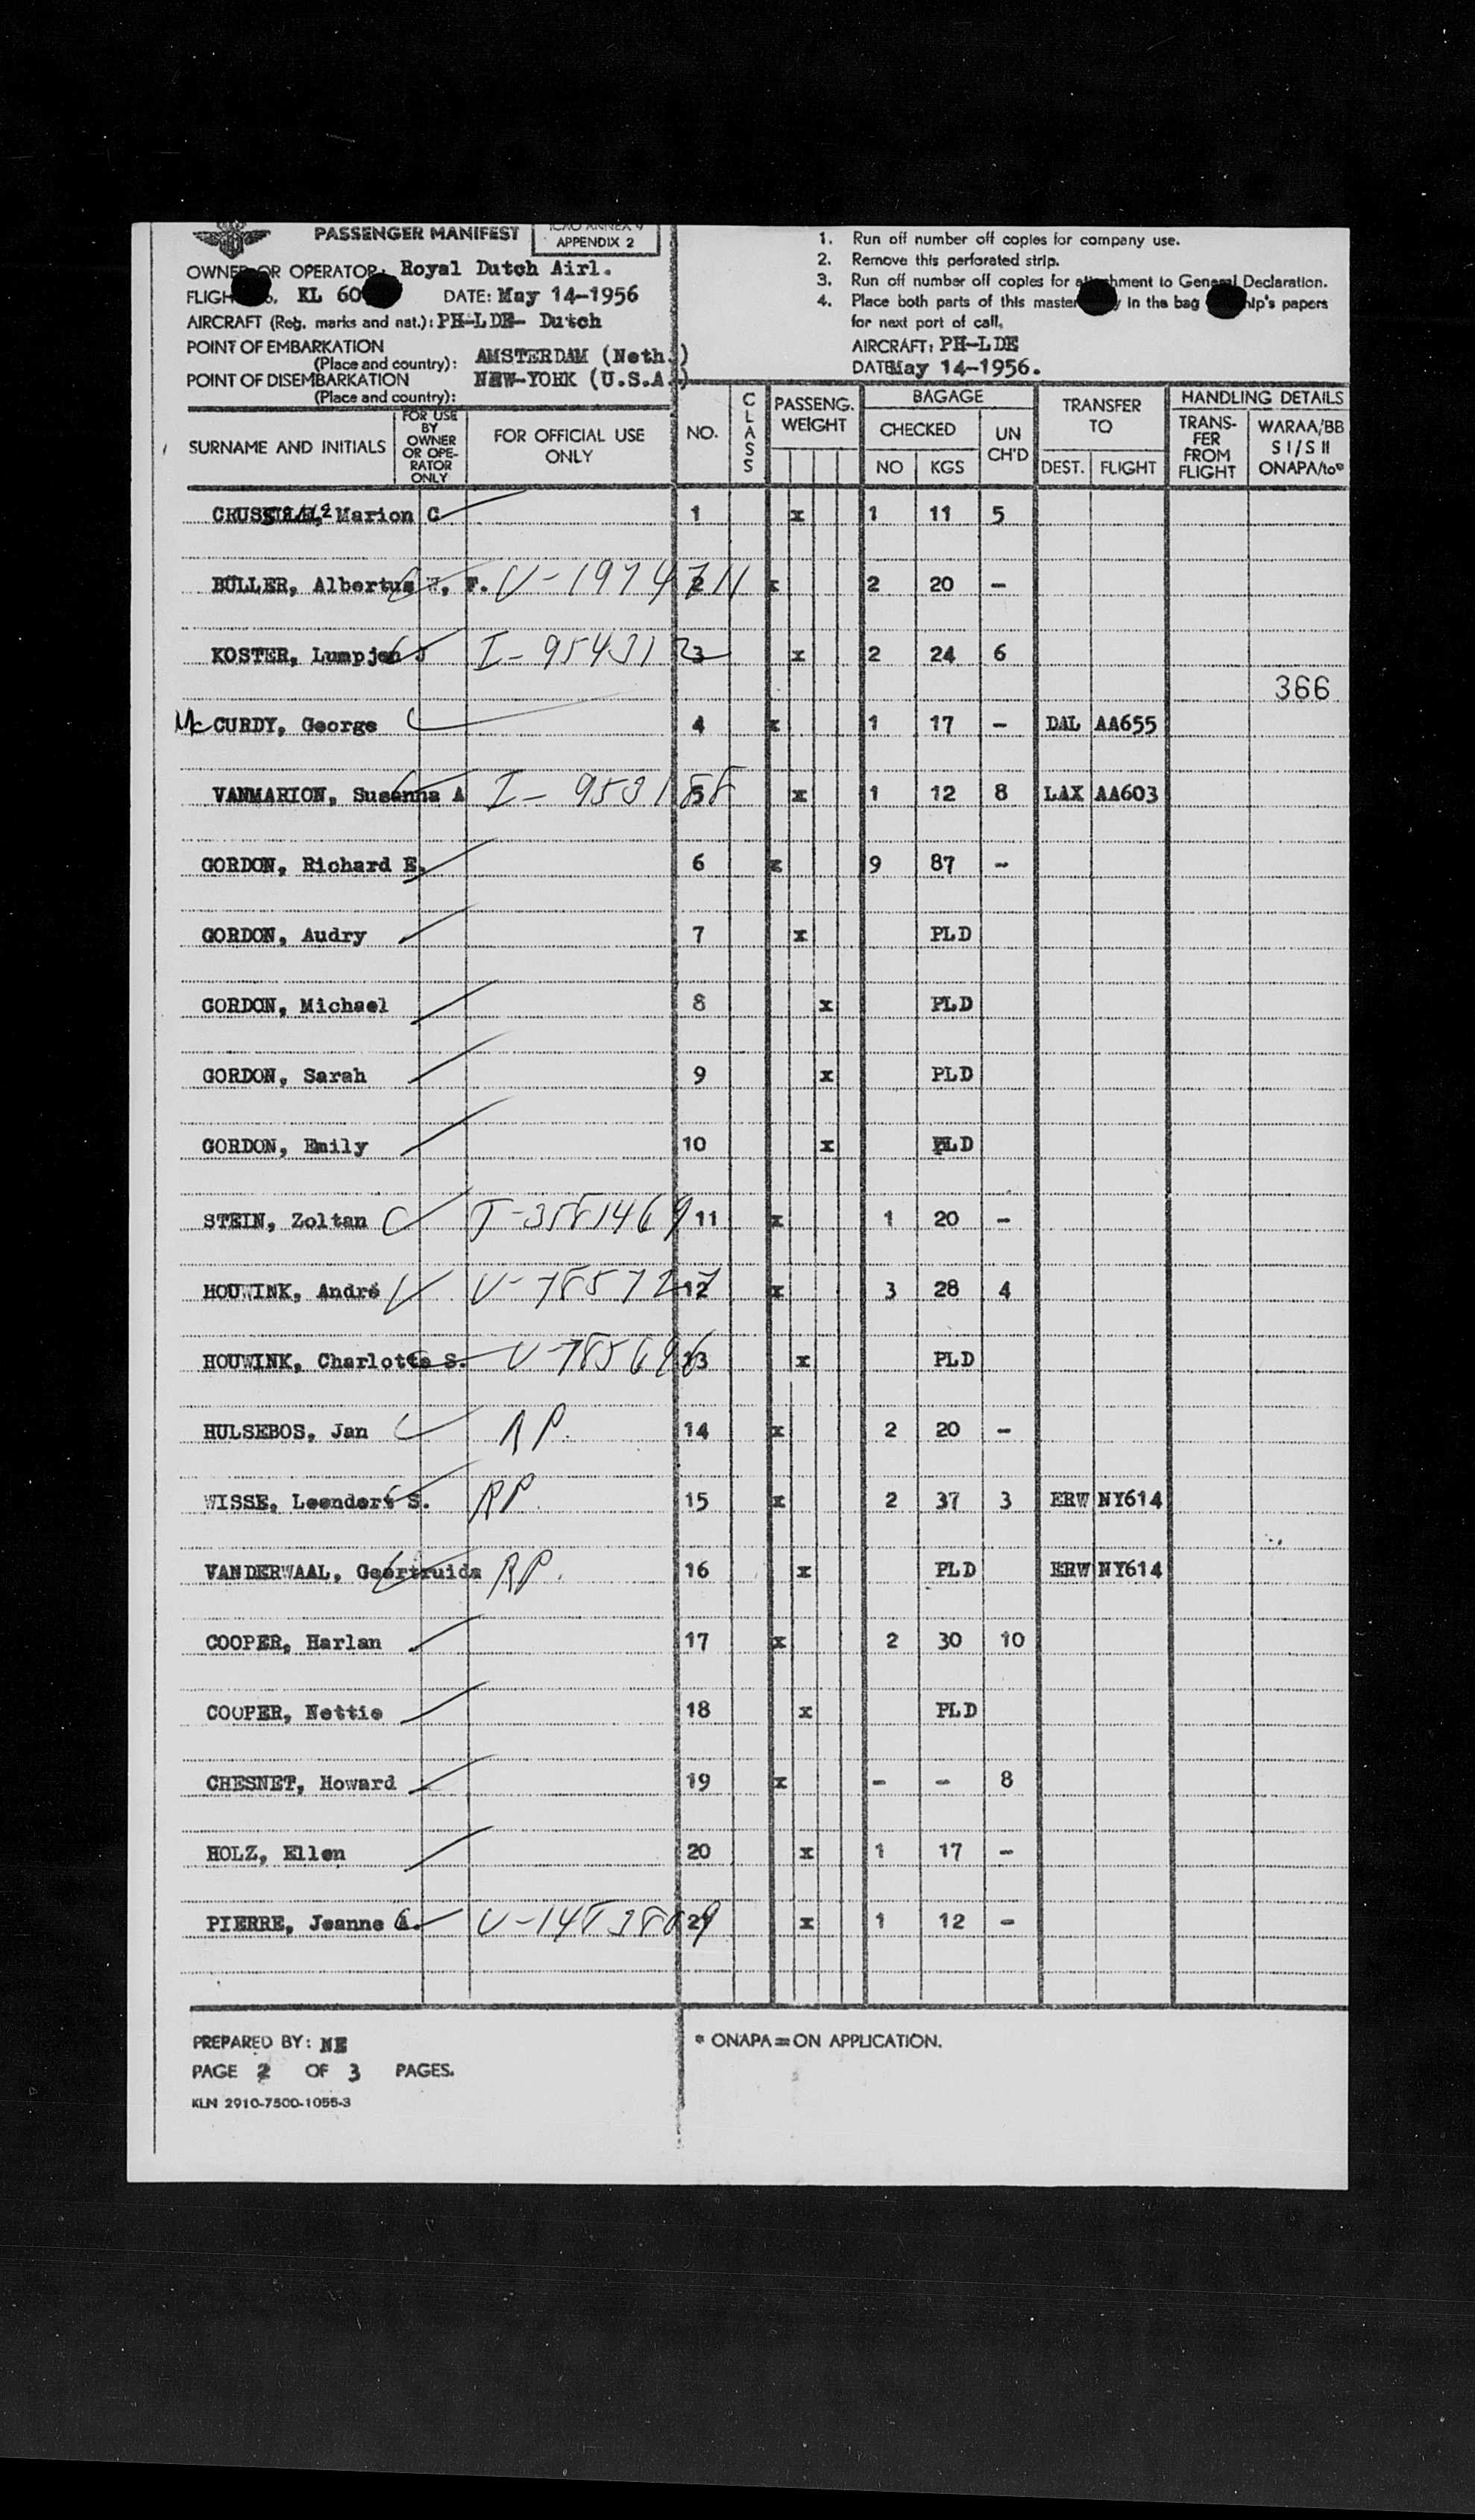 PASSENGER MANIFEST
ICAO ANNEX 9
APPENDIX 2
OWNER OR OPERATOR: Royal Dutch Airl.
FLIGHT KL 60 DATE: May 14-1956
AIRCRAFT (Reg. marks and nat.): PH-LDE- Dutch
POINT OF EMBARKATION
(Place and country): AMSTERDAM (Neth.)
POINT OF DISEMBARKATION
(Place and country): NEW-YORK (U.S.A.)
1. Run off number off copies for company use.
2. Remove this perforated strip.
3. Run off number off copies for attachment to General Declaration.
4. Place both parts of this master in the bag ship's papers
for next port of call,
AIRCRAFT: PH-LDE
DATE May 14-1956.
SURNAME AND INITIALS
FOR USE
BY
OWNER
OR OPE-
RATOR
ONLY
FOR OFFICIAL USE
ONLY
NO.
CLASS
PASSENG.
WEIGHT
BAGAGE
CHECKED
NO KGS
UN
CH'D
TRANSFER
TO
DEST. FLIGHT
HANDLING DETAILS
TRANS-
FER
FROM
FLIGHT
WARAA/BB
S I/S II
ONAPA/to*
Marion C 1 x 1 11 5
BÜLLER, Albertus F. V-1974711 2 x 2 20 -
KOSTER, Lumpjen J I-954312 3 x 2 24 6
366
McCURDY, George 4 x 1 17 - DAL AA655
VANMARION, Susanna A I-953188 5 x 1 12 8 LAX AA603
GORDON, Richard E. 6 x 9 87 -
GORDON, Audry 7 x PLD
GORDON, Michael 8 x PLD
GORDON, Sarah 9 x PLD
GORDON, Emily 10 x PLD
STEIN, Zoltan T-3581469 11 x 1 20 -
HOUWINK, André V-785727 12 x 3 28 4
HOUWINK, Charlotte S. V-785696 13 x PLD
HULSEBOS, Jan RP. 14 x 2 20 -
WISSE, Leendert S. RP. 15 x 2 37 3 ERW NY614
VANDERWAAL, Geertruida RP. 16 x PLD ERW NY614
COOPER, Harlan 17 x 2 30 10
COOPER, Nettie 18 x PLD
CHESNET, Howard 19 x - - 8
HOLZ, Ellen 20 x 1 17 -
PIERRE, Jeanne A. 21 x 1 12 -
PREPARED BY: NE
PAGE 2 OF 3 PAGES.
KLN 2910-7500-1055-3
* ONAPA = ON APPLICATION.